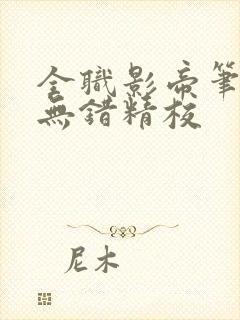 全職影帝筆
無錯精校
尼木